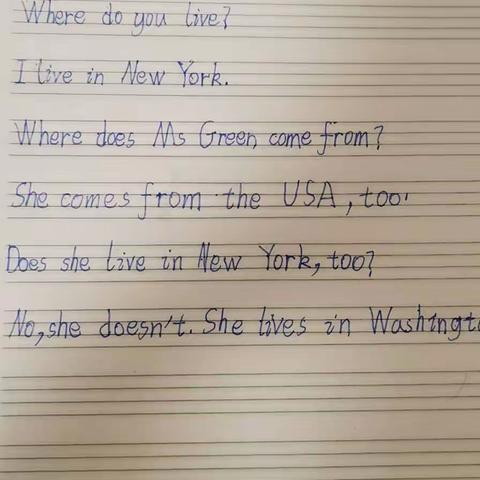 Where do you live?
I live in New York.
Where does Ms Green come from?
She comes from the USA, too.
Does she live in New York, too?
No, she doesn't. She lives in Washingt